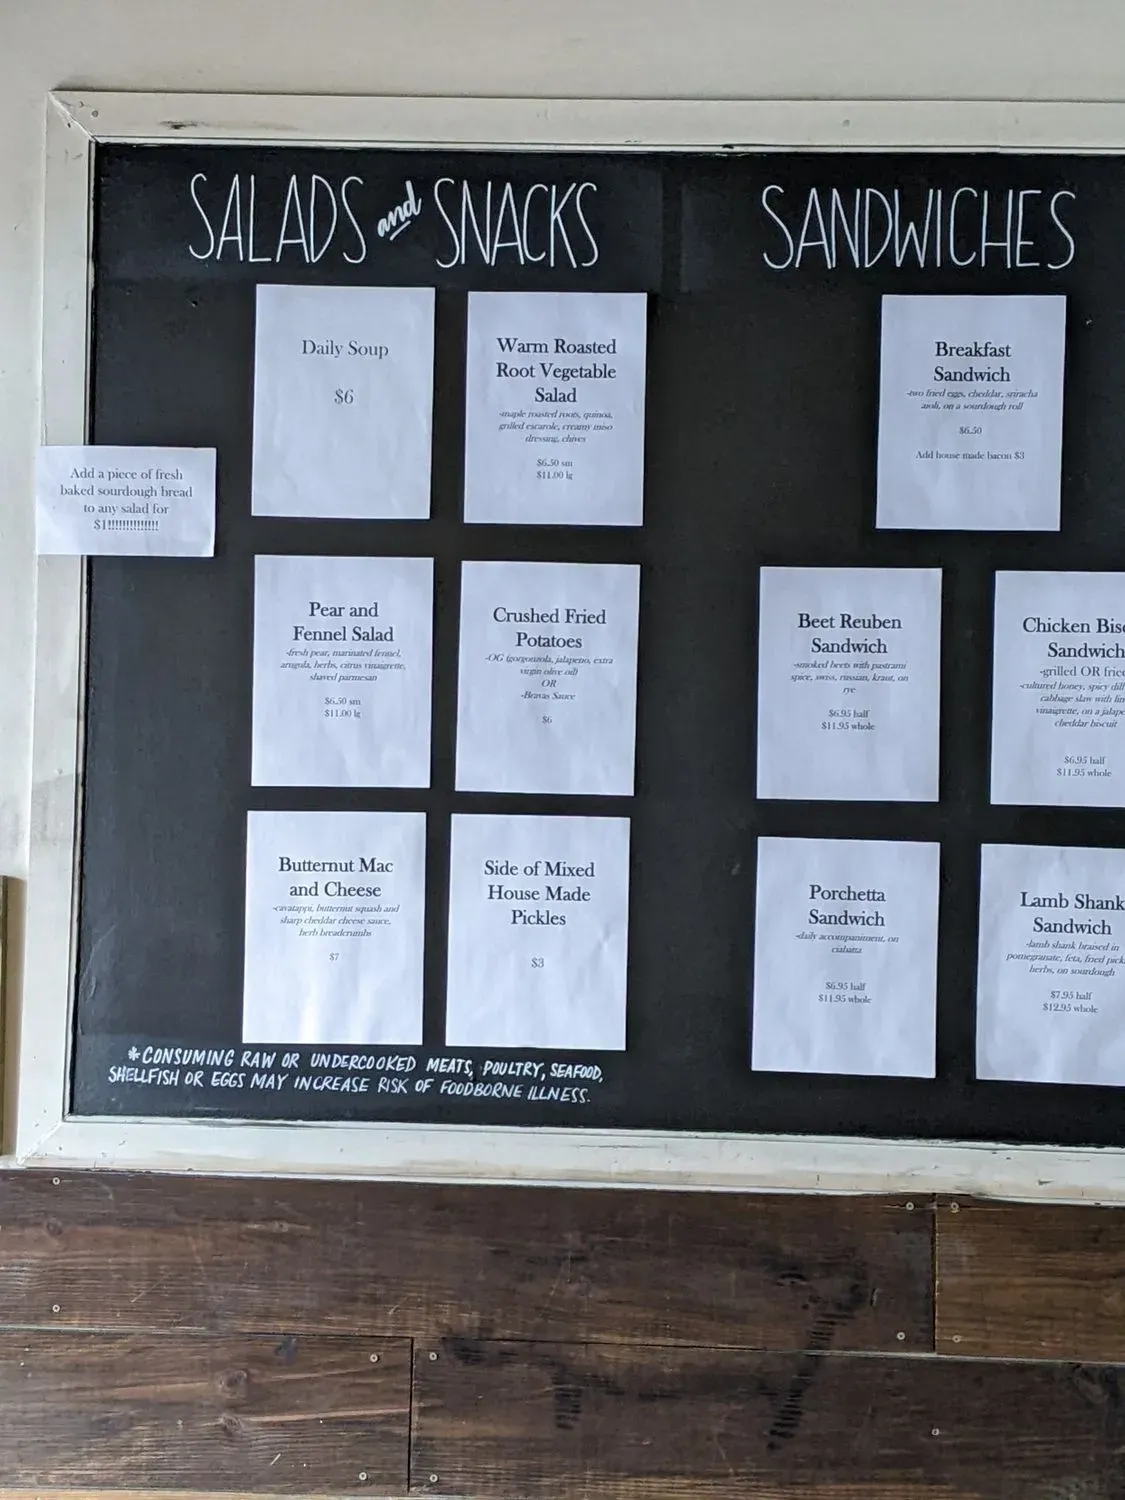 SALADS and SNACKS
Daily Soup
$6
Warm Roasted
Root Vegetable
Salad
-maple roasted roots, quinoa,
grilled escarole, creamy miso
dressing, chives
$6.50 sm
$11.00 lg
Add a piece of fresh
baked sourdough bread
to any salad for
$1!!!!!!!!!!!!!!
Pear and
Fennel Salad
-fresh pear, marinated fennel,
arugula, herbs, citrus vinaigrette,
shaved parmesan
$6.50 sm
$11.00 lg
Crushed Fried
Potatoes
-OG (gorgonzola, jalapeno, extra
virgin olive oil)
OR
-Bravas Sauce
$6
Butternut Mac
and Cheese
-cavatappi, butternut squash and
sharp cheddar cheese sauce,
herb breadcrumbs
$7
Side of Mixed
House Made
Pickles
$3
*CONSUMING RAW OR UNDERCOOKED MEATS, POULTRY, SEAFOOD,
SHELLFISH OR EGGS MAY INCREASE RISK OF FOODBORNE ILLNESS.
SANDWICHES
Breakfast
Sandwich
-two fried eggs, cheddar, sriracha
aioli, on a sourdough roll
$6.50
Add house made bacon $3
Beet Reuben
Sandwich
-smoked beets with pastrami
spice, swiss, russian, kraut, on
rye
$6.95 half
$11.95 whole
Chicken Bisc
Sandwich
-grilled OR fried
-cultured honey, spicy dill
cabbage slaw with lim
vinaigrette, on a jalape
cheddar biscuit
$6.95 half
$11.95 whole
Porchetta
Sandwich
-daily accompaniment, on
ciabatta
$6.95 half
$11.95 whole
Lamb Shank
Sandwich
-lamb shank braised in
pomegranate, feta, fried pick
herbs, on sourdough
$7.95 half
$12.95 whole